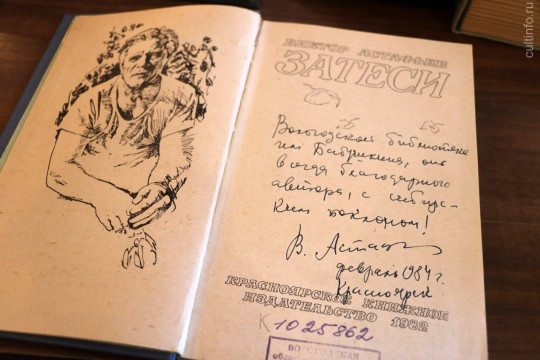 ВИКТОР АСТАФЬЕВ
ЗАТЕСИ
Вологодской библиотеке
им Бабушкина, от
всегда благодарного
автора, с сибирс-
ким поклоном!
В. Астаф
февраль 1984 г.
Красноярск
КРАСНОЯРСКОЕ КНИЖНОЕ
ИЗДАТЕЛЬСТВО 1982
К 1025862
ВОЛОГОДСКАЯ
cultinfo.ru